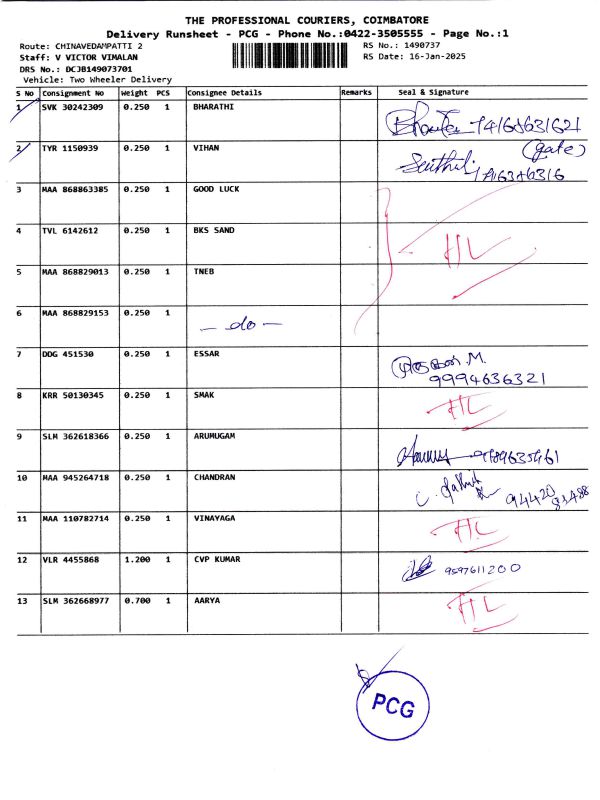 THE PROFESSIONAL COURIERS, COIMBATORE
Delivery Runsheet - PCG - Phone No.:0422-3505555 - Page No.:1
Route: CHINAVEDAMPATTI 2
RS No.: 1490737
Staff: V VICTOR VIMALAN
RS Date: 16-Jan-2025
DRS No.: DCJB149073701
Vehicle: Two Wheeler Delivery
S No Consignment No Weight PCS Consignee Details Remarks Seal & Signature
1 SVK 30242309 0.250 1 BHARATHI
2 TYR 1150939 0.250 1 VIHAN (gate)
3 MAA 868863385 0.250 1 GOOD LUCK
4 TVL 6142612 0.250 1 BKS SAND HL
5 MAA 868829013 0.250 1 TNEB
6 MAA 868829153 0.250 1 - do -
7 DDG 451530 0.250 1 ESSAR M. 9994636321
8 KRR 50130345 0.250 1 SMAK HL
9 SLM 362618366 0.250 1 ARUMUGAM
10 MAA 945264718 0.250 1 CHANDRAN 94420 81488
11 MAA 110782714 0.250 1 VINAYAGA HL
12 VLR 4455868 1.200 1 CVP KUMAR 9597611200
13 SLM 362668977 0.700 1 AARYA HL
PCG